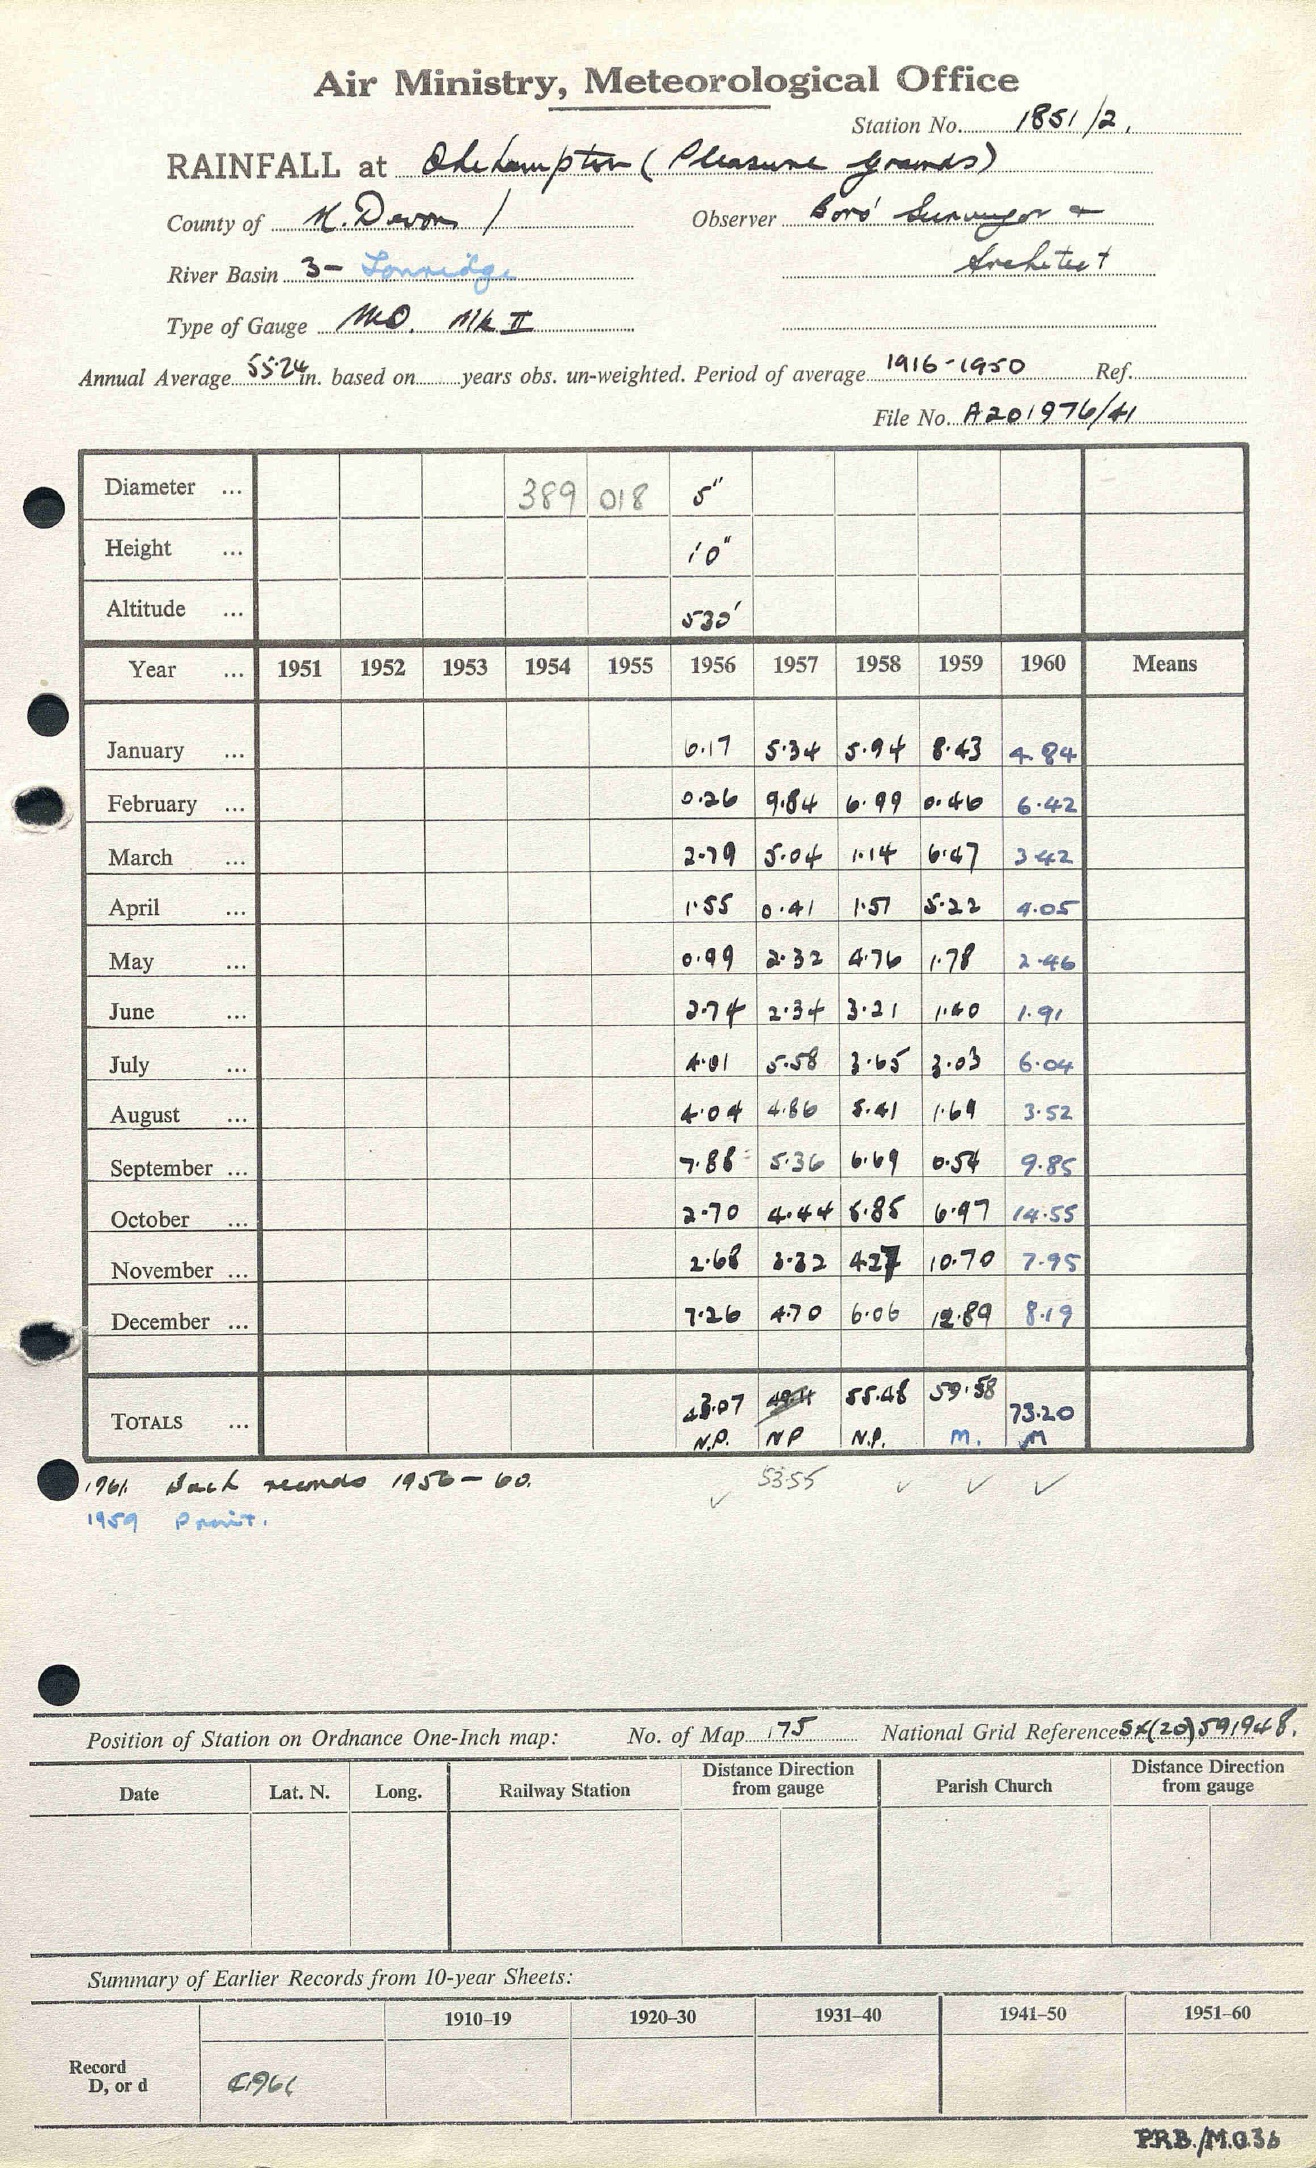 Air Ministry, Meteorological Office
Station No. 1851/2.
RAINFALL at Okehampton (Pleasure Grounds)
County of N. Devon / Observer Boro' Surveyor &
River Basin 3- Torridge Architect
Type of Gauge M.O. Mk II
Annual Average 55.24 in. based on years obs. un-weighted. Period of average 1916-1950 Ref.
File No. A201976/41
Diameter ... 389 018 5"
Height ... 10"
Altitude ... 530'
Year ... 1951 1952 1953 1954 1955 1956 1957 1958 1959 1960 Means
January ... 6.17 5.34 5.94 8.43 4.84
February ... 0.26 9.84 6.99 0.46 6.42
March ... 2.79 5.04 1.14 6.47 3.42
April ... 1.55 0.41 1.51 5.22 4.05
May ... 0.99 2.32 4.76 1.78 2.46
June ... 2.74 2.34 3.21 1.40 1.91
July ... 4.01 5.58 3.65 3.03 6.04
August ... 4.04 4.86 5.41 1.69 3.52
September ... 7.88 5.36 6.69 0.54 9.85
October ... 2.70 4.44 5.85 6.97 14.55
November ... 2.68 3.32 4.27 10.70 7.95
December ... 7.26 4.70 6.06 12.89 8.19
TOTALS ... 43.07 55.48 59.58 73.20
N.P. NP N.P. M. M
1961. Back records 1956-60. 53.55
1959 Print.
Position of Station on Ordnance One-Inch map: No. of Map 175 National Grid Reference SX(20)591948.
Date Lat. N. Long. Railway Station Distance Direction from gauge Parish Church Distance Direction from gauge
Summary of Earlier Records from 10-year Sheets:
1910–19 1920–30 1931–40 1941–50 1951–60
Record
D, or d C1961
P.R.B./M.O.36